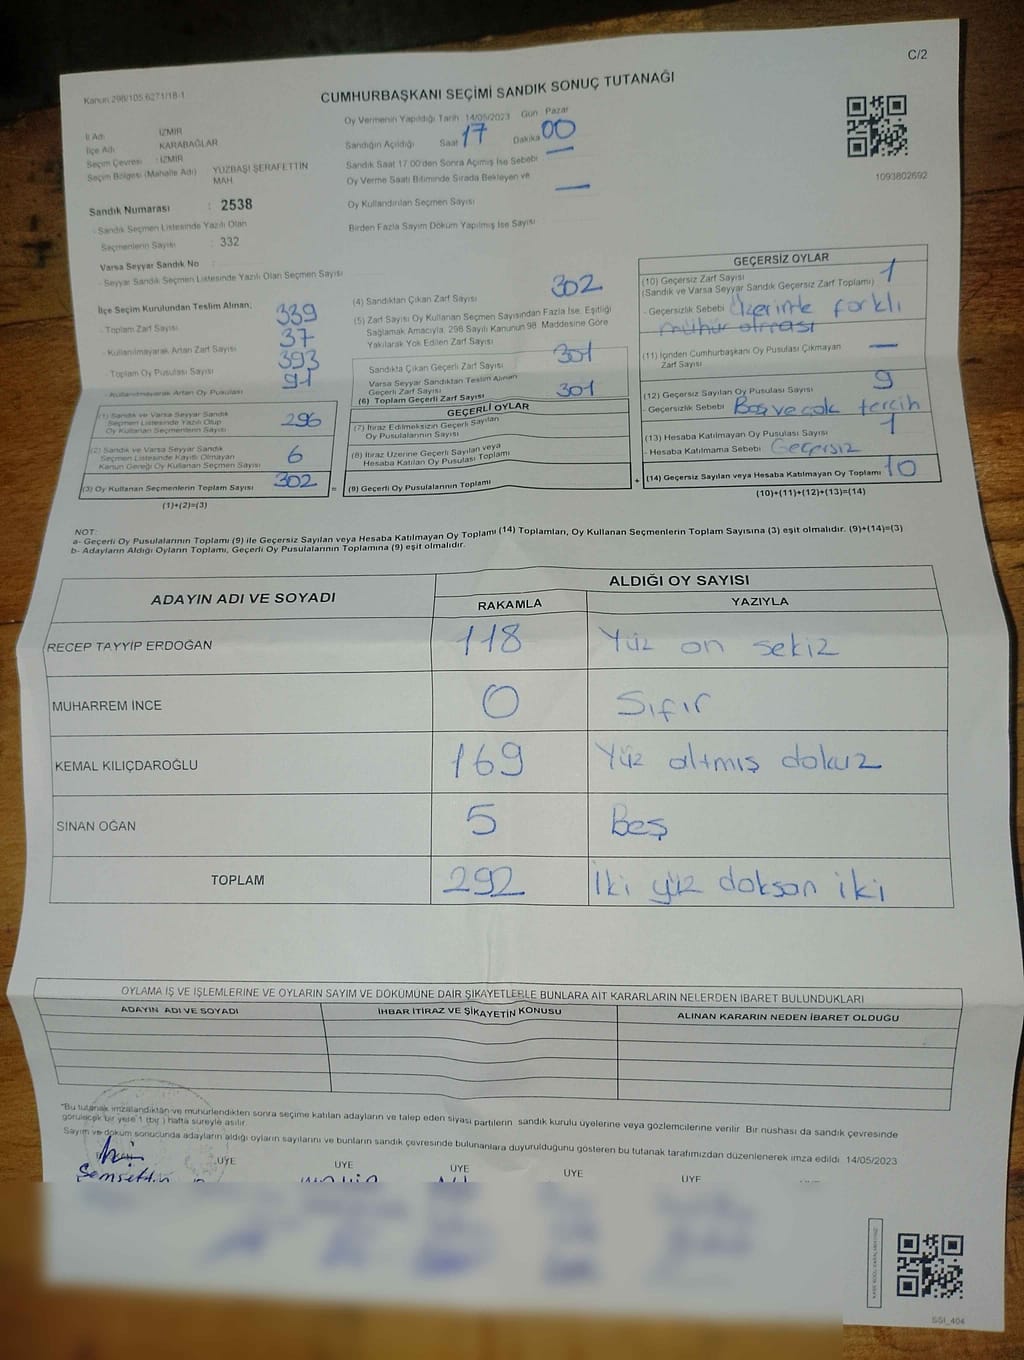 C/2
Kanun 298/105 6271/18-1
CUMHURBAŞKANI SEÇİMİ SANDIK SONUÇ TUTANAĞI
İl Adı İZMİR
İlçe Adı KARABAĞLAR
Seçim Çevresi : İZMİR
Seçim Bölgesi (Mahalle Adı) YÜZBAŞI ŞERAFETTİN MAH.
Sandık Numarası : 2538
- Sandık Seçmen Listesinde Yazılı Olan
Seçmenlerin Sayısı : 332
Varsa Seyyar Sandık No
- Seyyar Sandık Seçmen Listesinde Yazılı Olan Seçmen Sayısı
Oy Vermenin Yapıldığı Tarih 14/05/2023 Gün Pazar
Sandığın Açıldığı Saat 17 Dakika 00
Sandık Saat 17.00'den Sonra Açımış İse Sebebi —
Oy Verme Saati Bitiminde Sırada Bekleyen ve
Oy Kullandırılan Seçmen Sayısı —
Birden Fazla Sayım Döküm Yapılmış İse Sayısı
1093802692
İlçe Seçim Kurulundan Teslim Alınan;
- Toplam Zarf Sayısı 339
- Kullanılmayarak Artan Zarf Sayısı 37
- Toplam Oy Pusulası Sayısı 393
- Kullanılmayarak Artan Oy Pusulası 91
(1) Sandık ve Varsa Seyyar Sandık
Seçmen Listesinde Yazılı Olup
Oy Kullanan Seçmenlerin Sayısı 296
(2) Sandık ve Varsa Seyyar Sandık
Seçmen Listesinde Kayıtlı Olmayan
Kanun Gereği Oy Kullanan Seçmen Sayısı 6
(3) Oy Kullanan Seçmenlerin Toplam Sayısı 302
(1)+(2)=(3)
(4) Sandıktan Çıkan Zarf Sayısı 302
(5) Zarf Sayısı Oy Kullanan Seçmen Sayısından Fazla İse, Eşitliği
Sağlamak Amacıyla, 298 Sayılı Kanunun 98. Maddesine Göre
Yakılarak Yok Edilen Zarf Sayısı
Sandıkta Çıkan Geçerli Zarf Sayısı 301
Varsa Seyyar Sandıktan Teslim Alınan
Geçerli Zarf Sayısı
(6) Toplam Geçerli Zarf Sayısı 301
GEÇERLİ OYLAR
(7) İtiraz Edilmeksizin Geçerli Sayılan
Oy Pusulalarının Sayısı
(8) İtiraz Üzerine Geçerli Sayılan veya
Hesaba Katılan Oy Pusulası Toplamı
= (9) Geçerli Oy Pusulalarının Toplamı +
GEÇERSİZ OYLAR
(10) Geçersiz Zarf Sayısı 1
(Sandık ve Varsa Seyyar Sandık Geçersiz Zarf Toplamı)
- Geçersizlik Sebebi Üzerinde farklı
mühür olması
(11) İçinden Cumhurbaşkanı Oy Pusulası Çıkmayan
Zarf Sayısı —
(12) Geçersiz Sayılan Oy Pusulası Sayısı 9
- Geçersizlik Sebebi Boş ve çok tercih
(13) Hesaba Katılmayan Oy Pusulası Sayısı 1
- Hesaba Katılmama Sebebi Geçersiz
(14) Geçersiz Sayılan veya Hesaba Katılmayan Oy Toplamı 10
(10)+(11)+(12)+(13)=(14)
NOT:
a- Geçerli Oy Pusulalarının Toplamı (9) ile Geçersiz Sayılan veya Hesaba Katılmayan Oy Toplamı (14) Toplamları, Oy Kullanan Seçmenlerin Toplam Sayısına (3) eşit olmalıdır. (9)+(14)=(3)
b- Adayların Aldığı Oyların Toplamı, Geçerli Oy Pusulalarının Toplamına (9) eşit olmalıdır.
ADAYIN ADI VE SOYADI ALDIĞI OY SAYISI
RAKAMLA YAZIYLA
RECEP TAYYİP ERDOĞAN 118 Yüz on sekiz
MUHARREM İNCE 0 Sıfır
KEMAL KILIÇDAROĞLU 169 Yüz altmış dokuz
SİNAN OĞAN 5 Beş
TOPLAM 292 İki yüz doksan iki
OYLAMA İŞ VE İŞLEMLERİNE VE OYLARIN SAYIM VE DÖKÜMÜNE DAİR ŞİKAYETLERLE BUNLARA AİT KARARLARIN NELERDEN İBARET BULUNDUKLARI
ADAYIN ADI VE SOYADI İHBAR İTİRAZ VE ŞİKAYETİN KONUSU ALINAN KARARIN NEDEN İBARET OLDUĞU
"Bu tutanak imzalandıktan ve mühürlendikten sonra seçime katılan adayların ve talep eden siyasi partilerin sandık kurulu üyelerine veya gözlemcilerine verilir. Bir nüshası da sandık çevresinde
görülecek bir yere 1 (bir ) hafta süreyle asılır.
Sayım ve döküm sonucunda adayların aldığı oyların sayılarını ve bunların sandık çevresinde bulunanlara duyurulduğunu gösteren bu tutanak tarafımızdan düzenlenerek imza edildi 14/05/2023
ÜYE ÜYE ÜYE ÜYE ÜYE
Şemsettin
SSI_404